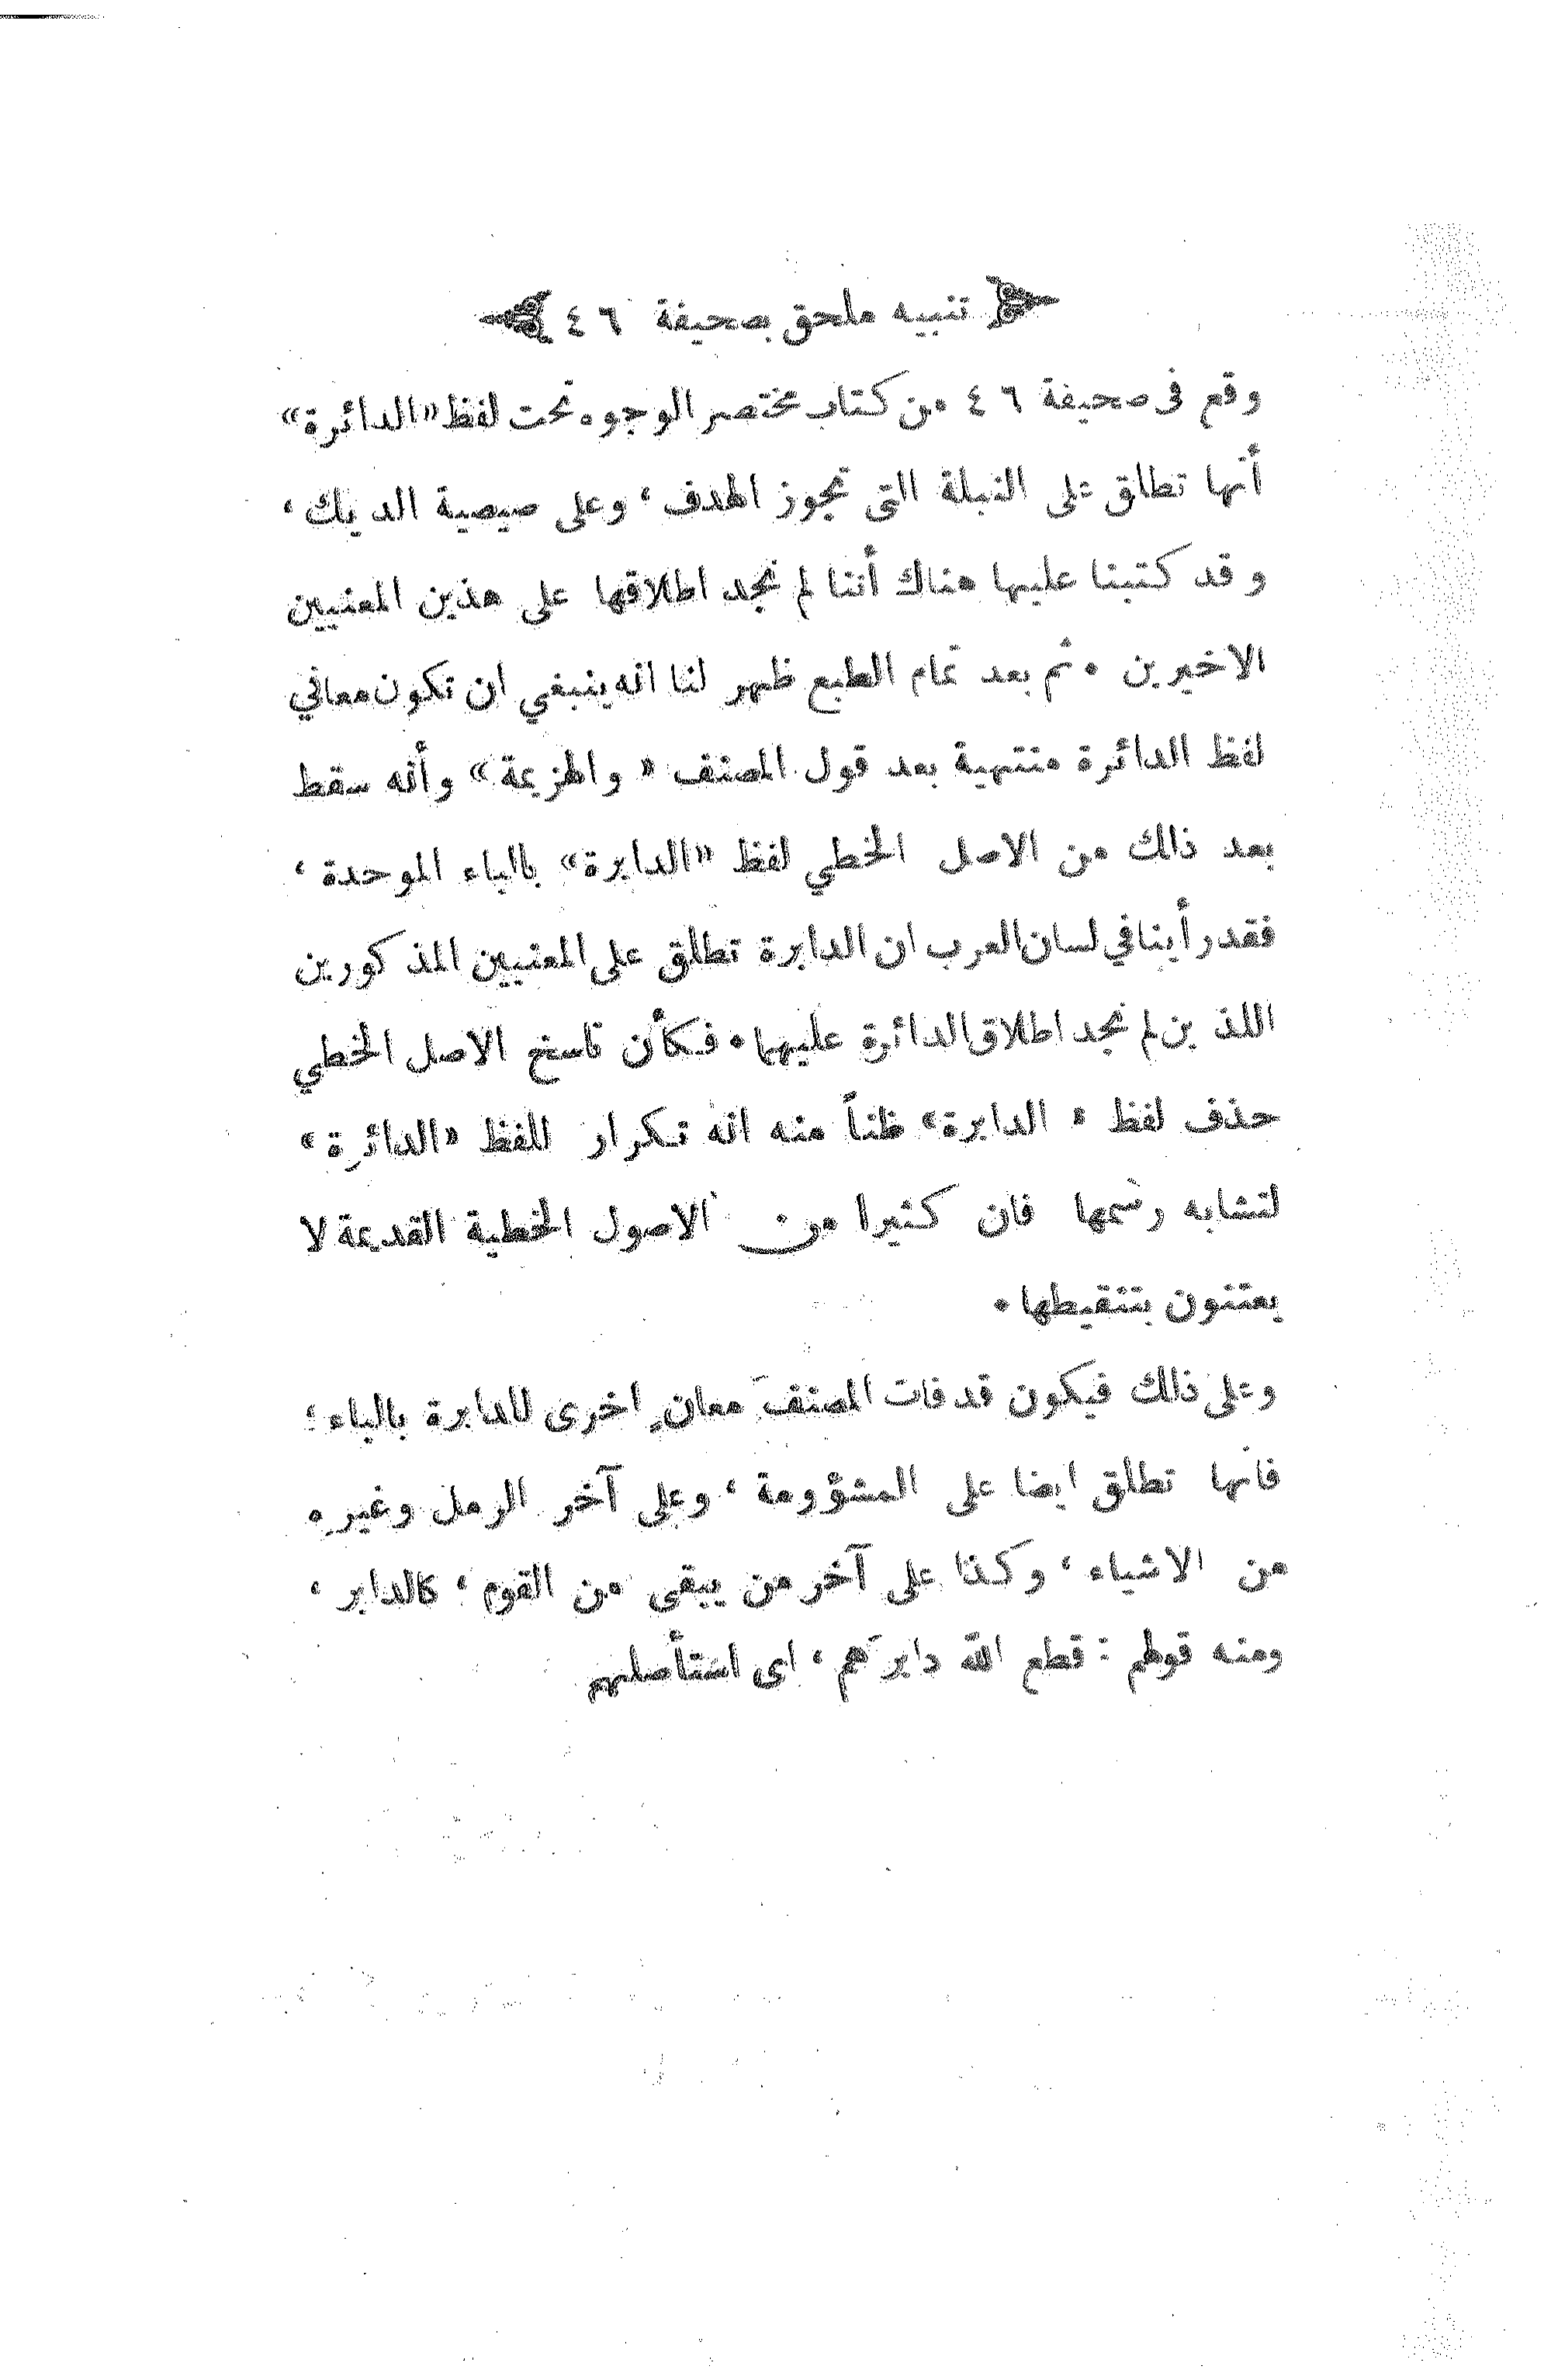 تنبيه ملحق بصحيفة ٤٦
وقع فى صحيفة ٤٦ من كتاب مختصر الوجوه تحت لفظ «الدائرة»
أنها تطلق على النبلة التى تجوز الهدف، وعلى صيصية الديك،
وقد كتبنا عليها هناك أننا لم نجد اطلاقها على هذين المعنيين
الاخيرين. ثم بعد تمام الطبع ظهر لنا انه ينبغي ان تكون معاني
لفظ الدائرة منتهية بعد قول المصنف «والهزيمة» وأنه سقط
بعد ذلك من الاصل الخطي لفظ «الدابرة» بالباء الموحدة،
فقد رأينا في لسان العرب ان الدابرة تطلق على المعنيين المذكورين
اللذين لم نجد اطلاق الدائرة عليهما. فكأن ناسخ الاصل الخطي
حذف لفظ «الدابرة» ظناً منه انه تكرار للفظ «الدائرة»
لتشابه رسمها فان كثيرا من الاصول الخطية القديمة لا
يعتنون بتنقيطها.
وعلى ذلك فيكون قد فات المصنفَ معانٍ اخرى للدابرة بالباء؛
فانها تطلق ايضا على المشؤومة، وعلى آخر الرمل وغيره
من الاشياء، وكذا على آخر من يبقى من القوم، كالدابر،
ومنه قولهم: قطع الله دابرَهم، اى استأصلهم